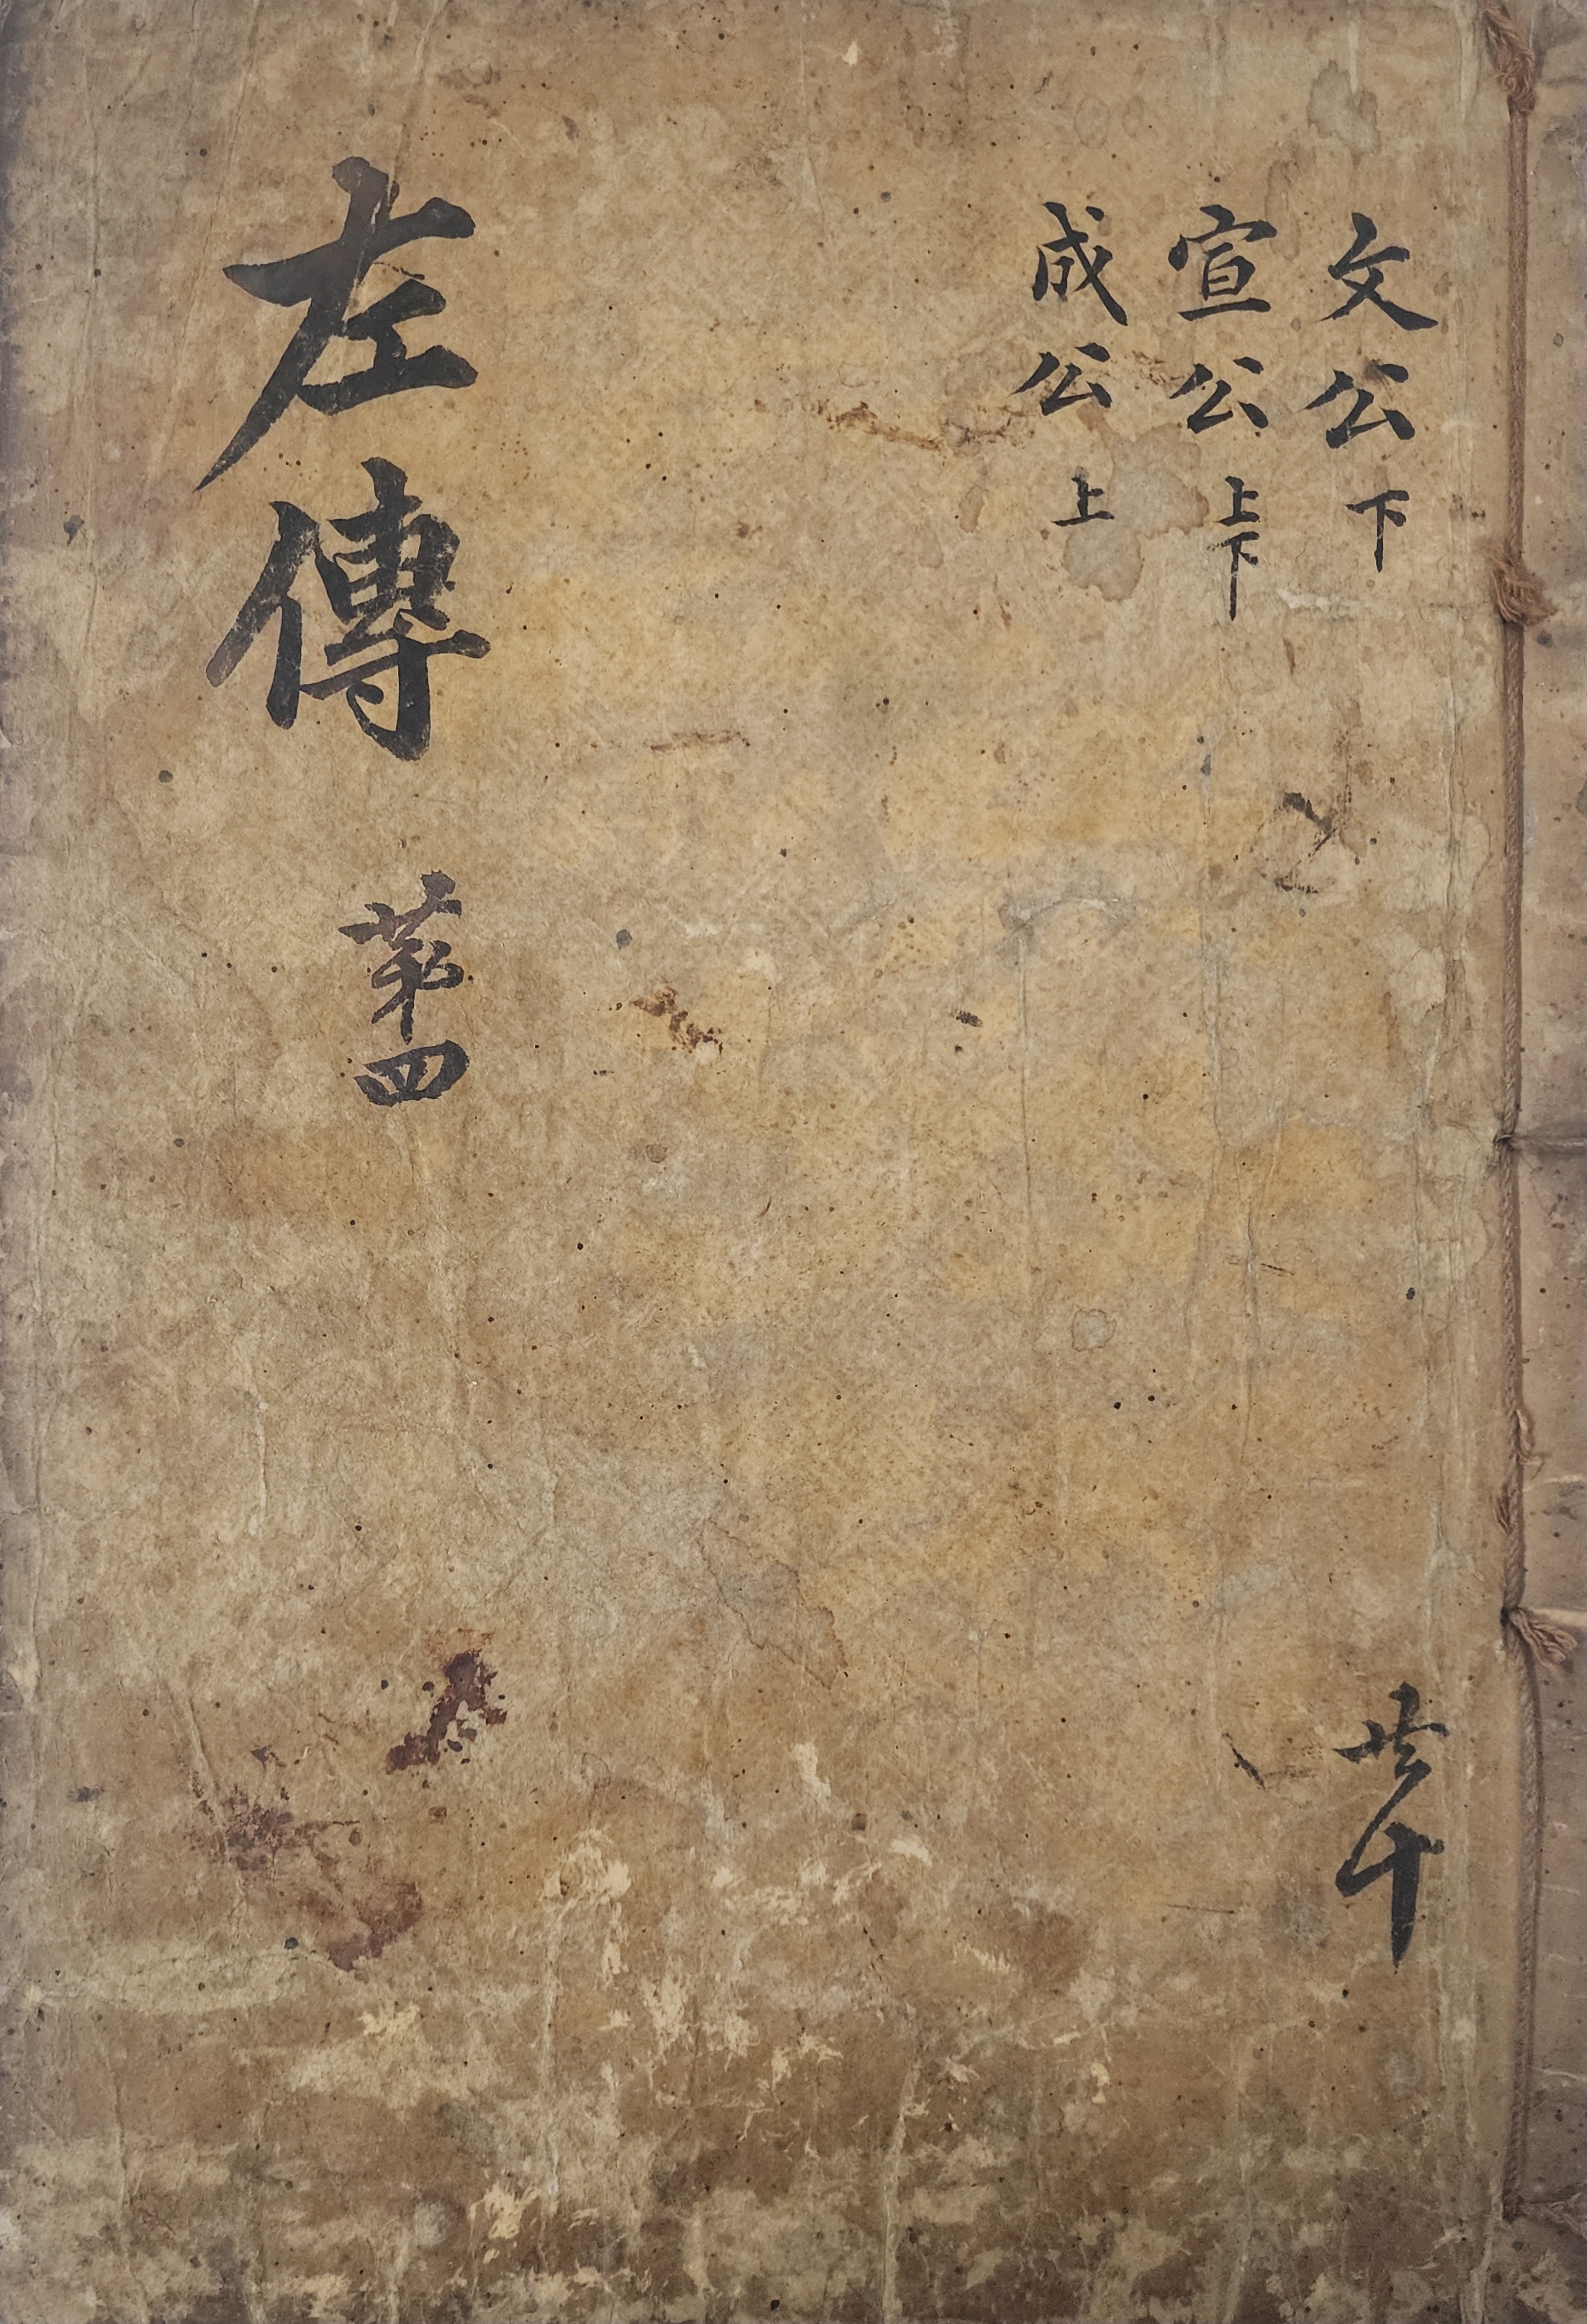 文公下
宣公上下
成公上
左傳
苐四
共十